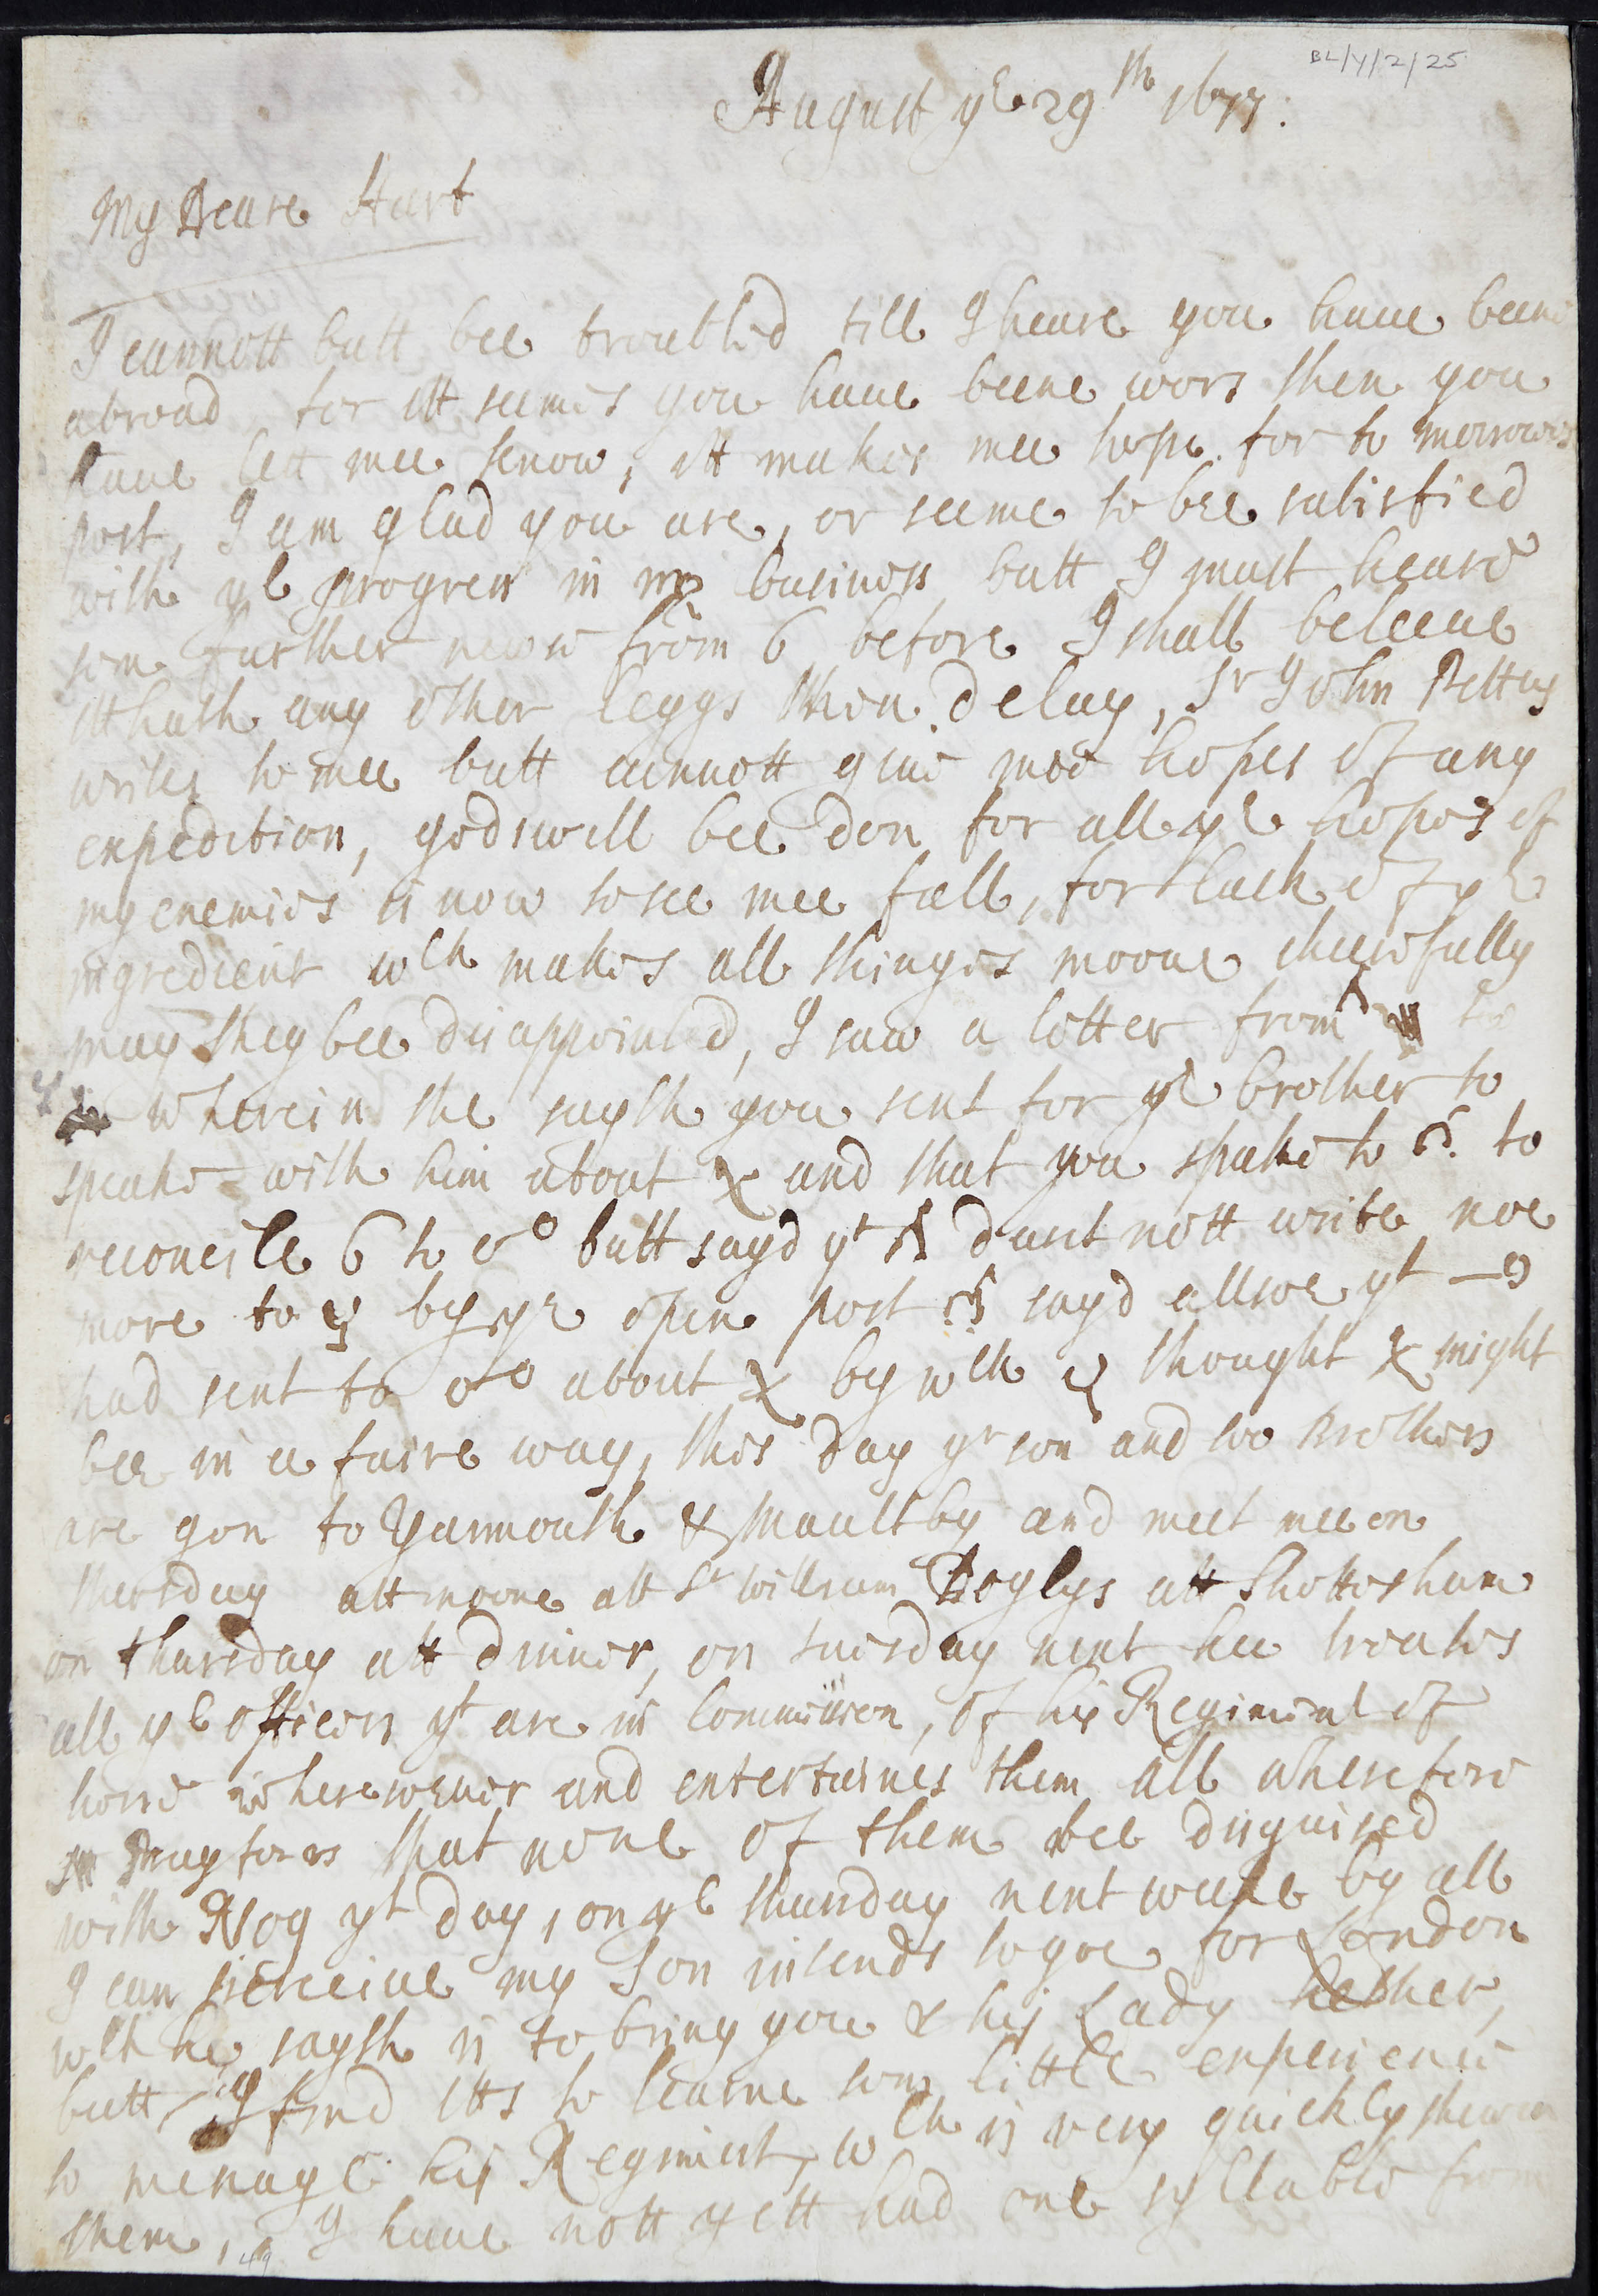 BL/Y/2/25
August ye 29th 1677:
My Deare Hart
I cannott butt bee troubled till I heare you haue beene
abroad, for itt seemes you haue beene wors then you
haue lett mee know, itt makes mee hope for to morrows
post, I am glad you are, or seeme to bee satisfied
with ye progress in my business butt I must heare
som further news from 6 before I shall beleeue
itt hath any other leggs then delay, Sr John Pettus
writes to mee butt cannott giue mee hopes of any
expedition, gods will bee don for all ye hopes of
my enemies is now to see mee fall, for lack of ye
ingredient wch makes all thinges mooue cheerfully
may they bee disappointed, I saw a letter from
wherein she sayth you sent for ye brother to
speake with him about and that you spake to to
reconcile 6 to butt sayd yt durst nott write noe
more to by ye open post sayd allsoe yt
had sent to about by wch thought might
bee in a faire way, this day yr son and two Brothers
are gon to Yarmouth & Maultby and meet mee on
thursday att noone att Sr William Doylys att Shottesham
on thursday att dinner, on tuesday next hee treates
all ye officers yt are in Commission, of his Regiment of
horse wheresoeuer and entertaines them all wherefore
pray for us that none of them bee disguised
with Nog yt day, on ye thursday next weeke by all
I can perceiue my Son intends to goe for London
wch he sayth is to bring you & his Lady hether,
butt I find itts to learne som little experience
to menage his Regiment, wch is very quickly shewen
them, I haue nott yett had one syllable from
49